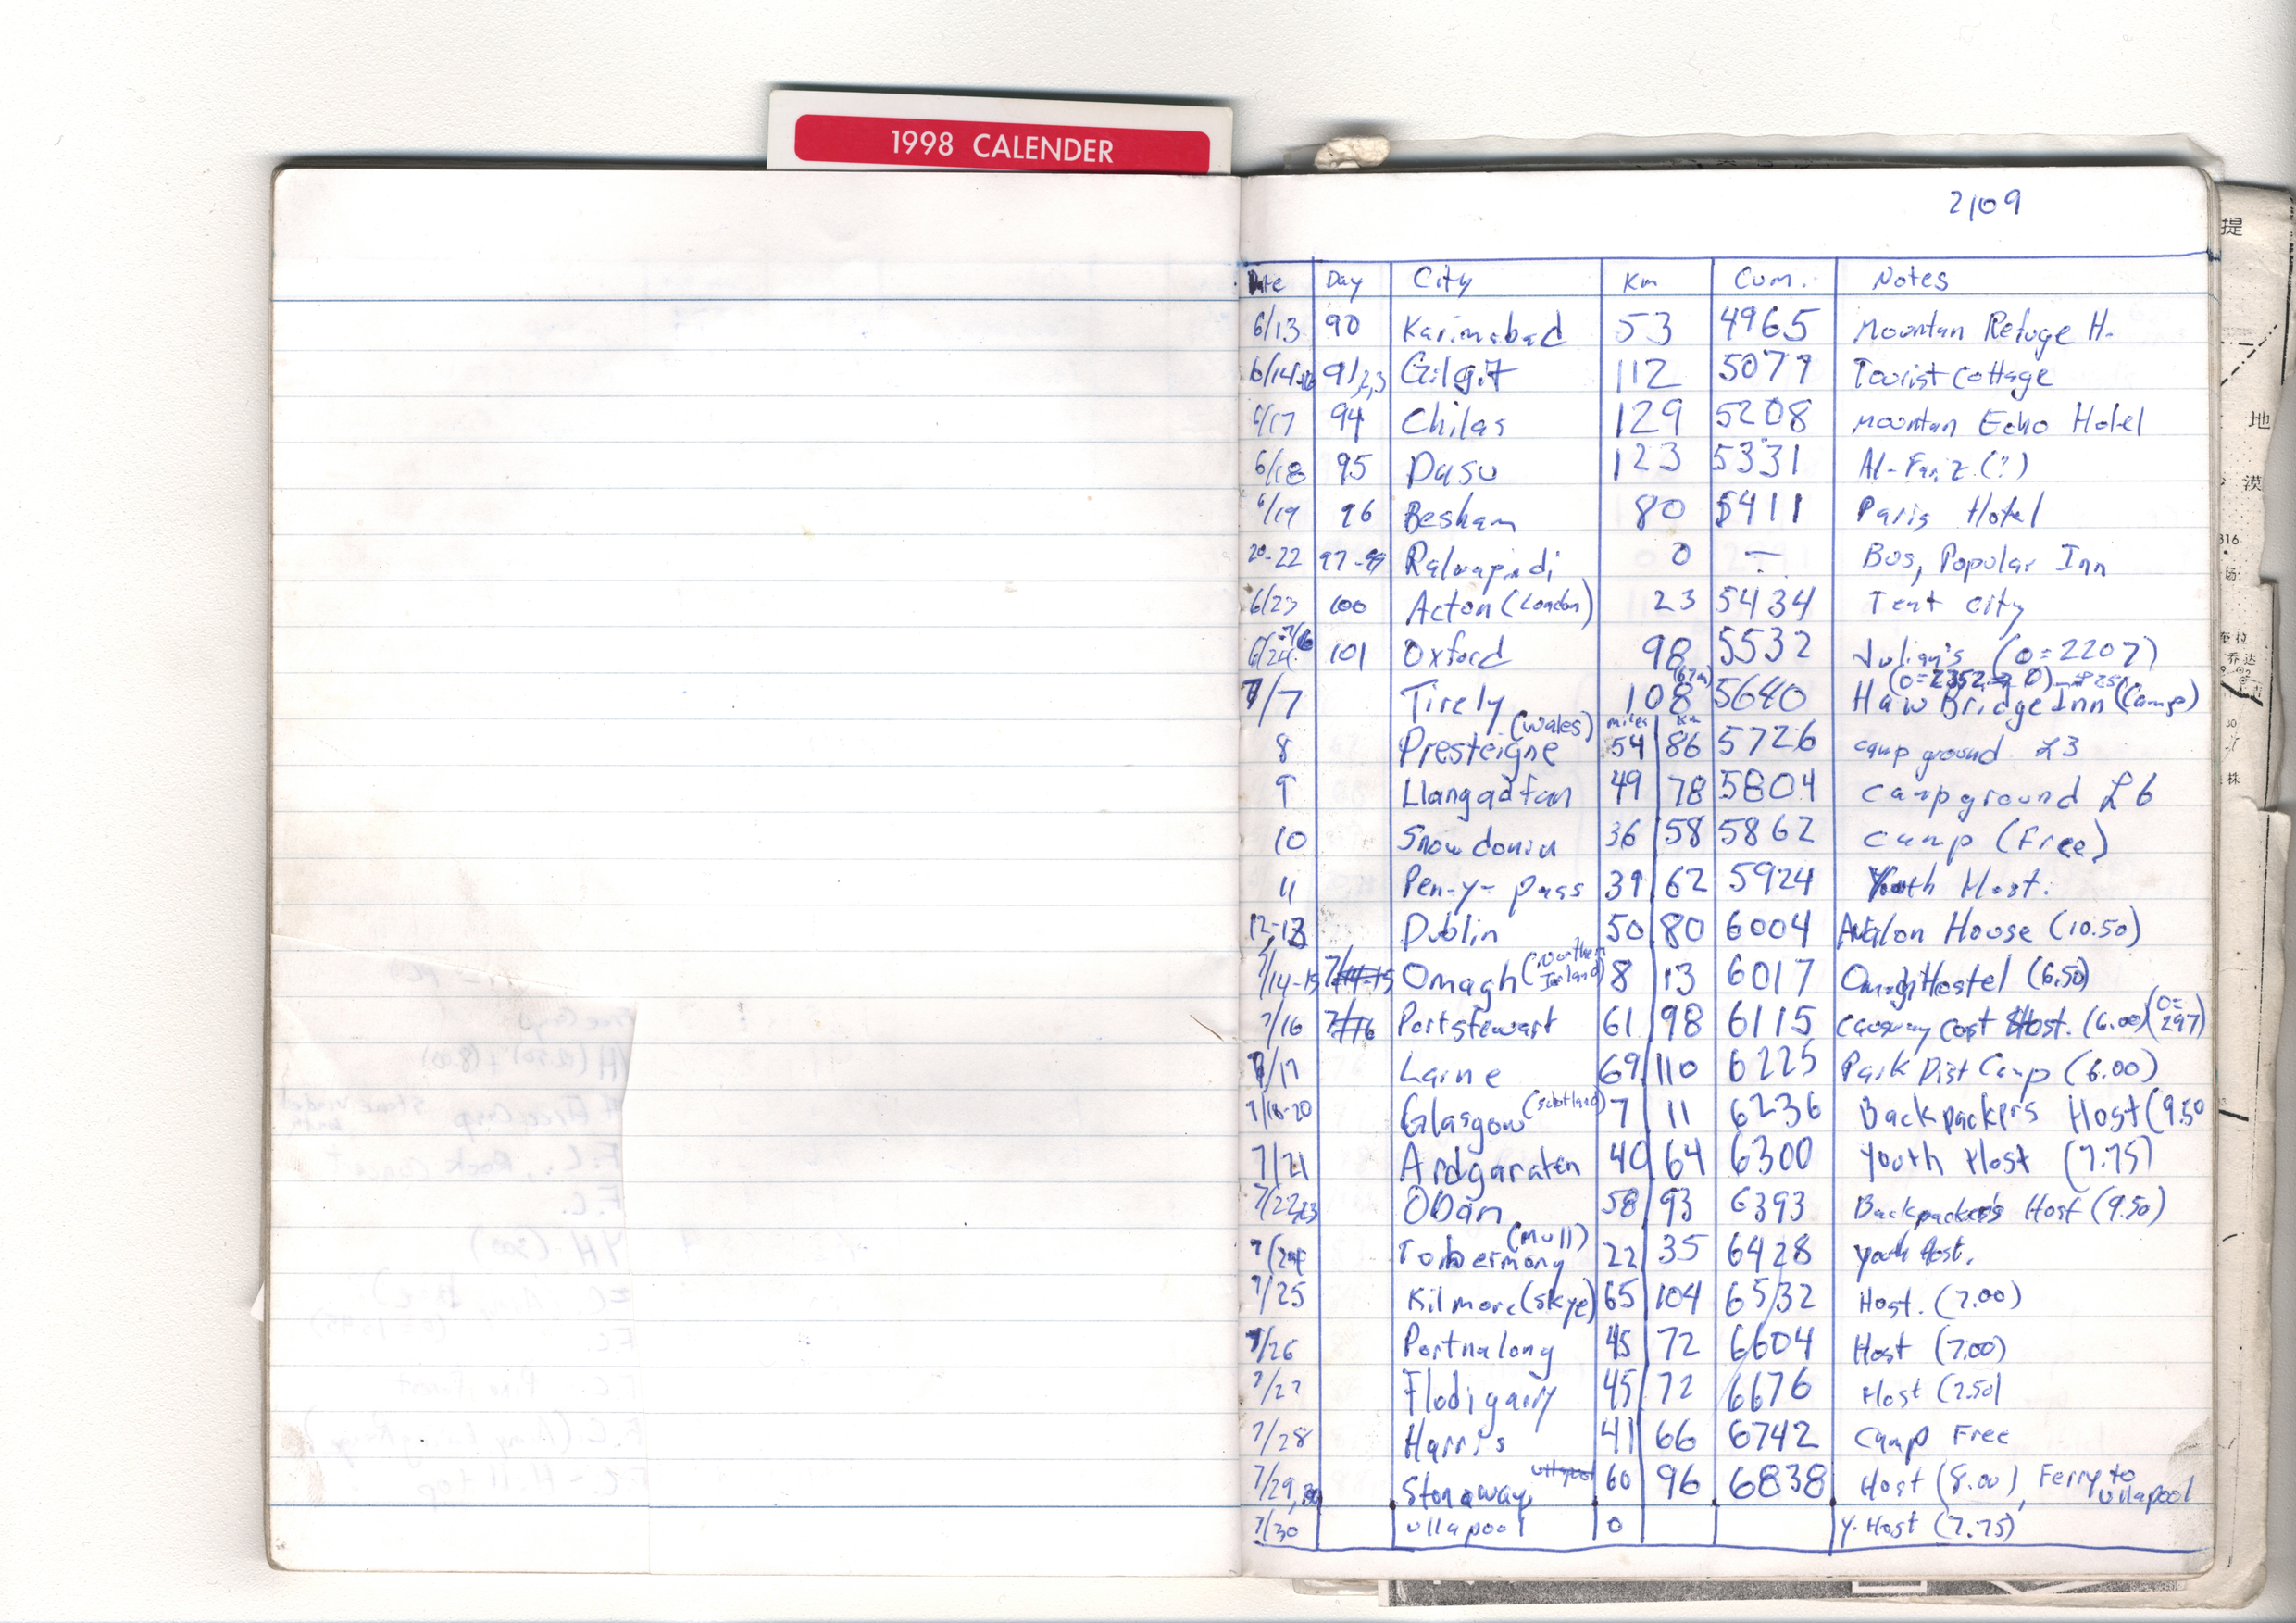 1998 CALENDER
2109
Date Day City Km Cum. Notes
6/13 90 Karimabad 53 4965 Mountan Refuge H.
6/14-16 91,2,3 Gilgit 112 5077 Tourist Cottage
6/17 94 Chilas 129 5208 Mountan Echo Hotel
6/18 95 Dasu 123 5331 Al-Fariz (?)
6/19 96 Besham 80 5411 Paris Hotel
20-22 97-99 Ralwapindi 0 — Bus, Popular Inn
6/23 100 Acton (London) 23 5434 Tent City
6/24-7/6 101 Oxford 98 5532 Julian's (0=2207)
(67m) (0=2352→0)
7/7 Tirely 108 5640 Haw Bridge Inn (Camp)
miles km
8 Presteigne (Wales) 54 86 5726 campground £3
9 Llangadfan 49 78 5804 campground £6
10 Snowdonia 36 58 5862 camp (Free)
11 Pen-y-pass 39 62 5924 Youth Host.
12-13 Dublin 50 80 6004 Avalon House (10.50)
7/14-15 7/14-15 Omagh (Northern Ireland) 8 13 6017 Omagh Hostel (6.50)
7/16 7/16 Portstewart 61 98 6115 Causway Cost Host. (6.00) (0=297)
7/17 Larne 69 110 6225 Park Dist Camp (6.00)
7/18-20 Glasgow (Scotland) 7 11 6236 Backpackers Host (9.50
7/21 Ardgaraten 40 64 6300 Youth Host (7.75)
7/22,23 Oban 58 93 6393 Backpackers Host (9.50)
7/24 Tobermony (Mull) 22 35 6428 Youth Host.
7/25 Kilmore (Skye) 65 104 6532 Host. (7.00)
7/26 Portnalong 45 72 6604 Host (7.00)
7/27 Flodigarry 45 72 6676 Host (7.50)
7/28 Harris 41 66 6742 Camp Free
7/29,30 Stonaway Ullapool 60 96 6838 Host (8.00), Ferry to Ullapool
7/30 Ullapool 0 Y. Host (7.75)
提
地
漠
316
场
拉
乔达
30
株